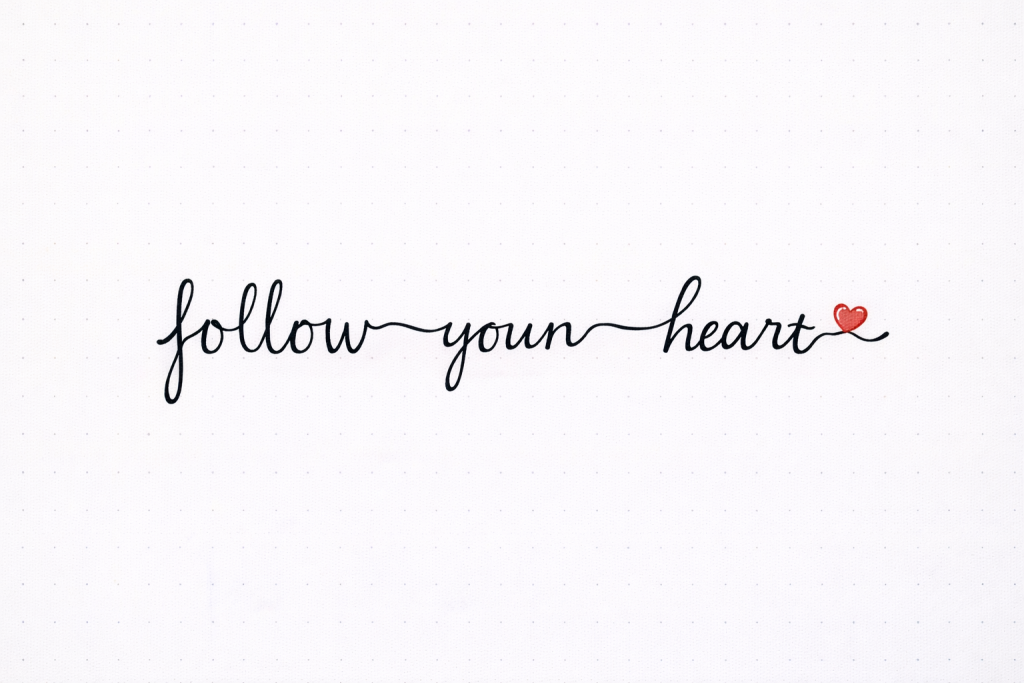 follow youn heart